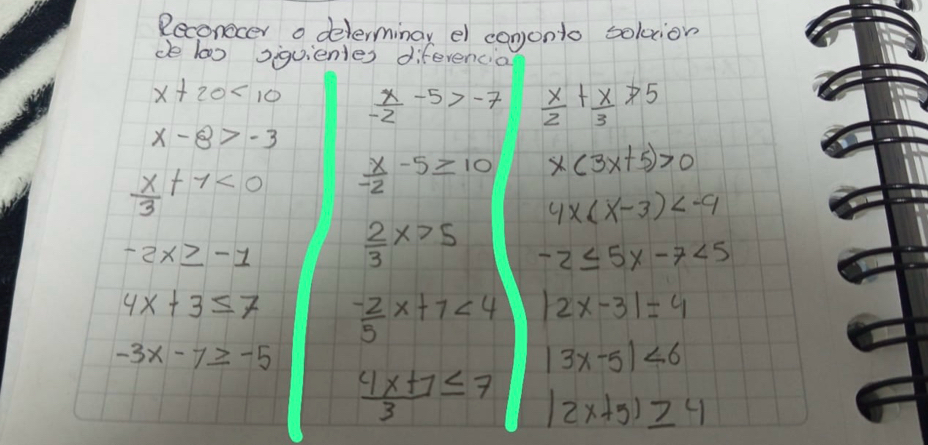 Reconocer o determinar el conjonto solucion
de las siguientes diferencia
x + 20 < 10
x - 8 > -3
x/3 + 7 < 0
-2x ≥ -1
4x + 3 ≤ 7
-3x - 7 ≥ -5
x/-2 - 5 > -7
x/-2 - 5 ≥ 10
2/3 x > 5
-2/5 x + 7 < 4
4x+7/3 ≤ 7
x/2 + x/3 ≯ 5
x(3x+5)>0
4x(x-3)<-9
-2 ≤ 5x - 7 < 5
|2x-3| = 4
|3x-5| < 6
|2x+5| ≥ 4